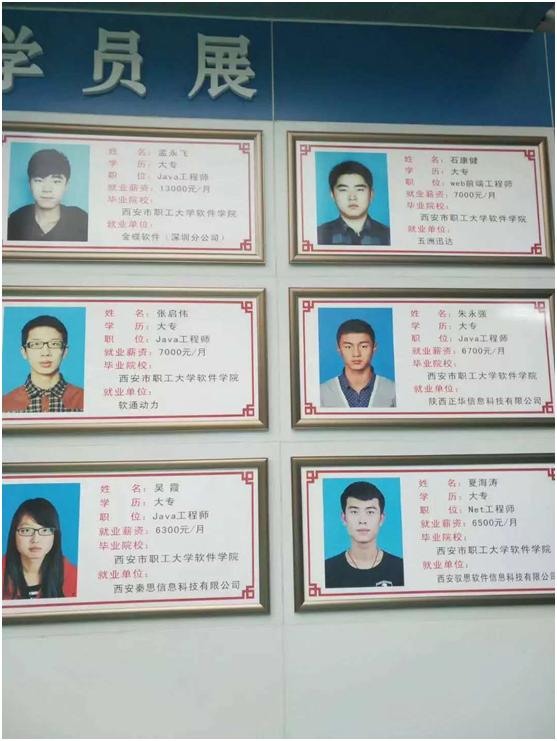 学员展
姓　名：孟永飞
学　历：大专
职　位：Java工程师
就业薪资：13000元/月
毕业院校：
西安市职工大学软件学院
就业单位：
金蝶软件（深圳分公司）
姓　名：石康健
学　历：大专
职　位：web前端工程师
就业薪资：7000元/月
毕业院校：
西安市职工大学软件学院
就业单位：
五洲迅达
姓　名：张启伟
学　历：大专
职　位：Java工程师
就业薪资：7000元/月
毕业院校：
西安市职工大学软件学院
就业单位：
软通动力
姓　名：朱永强
学　历：大专
职　位：Java工程师
就业薪资：6700元/月
毕业院校：
西安市职工大学软件学院
就业单位：
陕西正华信息科技有限公司
姓　名：吴 霞
学　历：大专
职　位：Java工程师
就业薪资：6300元/月
毕业院校：
西安市职工大学软件学院
就业单位：
西安秦思信息科技有限公司
姓　名：夏海涛
学　历：大专
职　位：Net工程师
就业薪资：6500元/月
毕业院校：
西安市职工大学软件学院
就业单位：
西安驭思软件信息科技有限公司